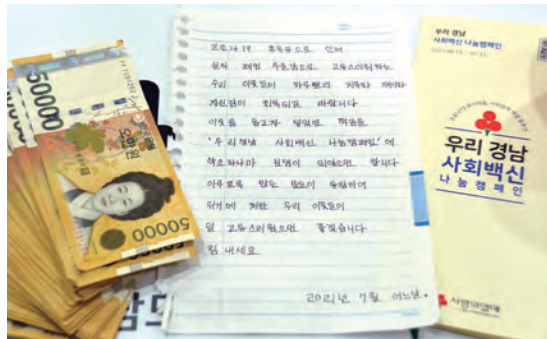 50000
50000
오만원
50000
코로나19 후유증으로 인해
실직 폐업 우울증으로 고통스러워하는
우리 이웃들이 하루빨리 치유와
자신감이 회복되길 바랍니다
이웃을 돕고자 넣었던 적금을
"우리경남 사회백신 나눔캠페인"에
적으나마 보탬이 되었으면 합니다
아무쪼록 많은 분들이 동참하여
위기에 처한 우리 이웃들이
덜 고통스러웠으면 좋겠습니다
힘 내세요
2021년 7월 어느날.
우리 경남
사회백신 나눔캠페인
우리 경남
사회백신
나눔캠페인
사랑의열매